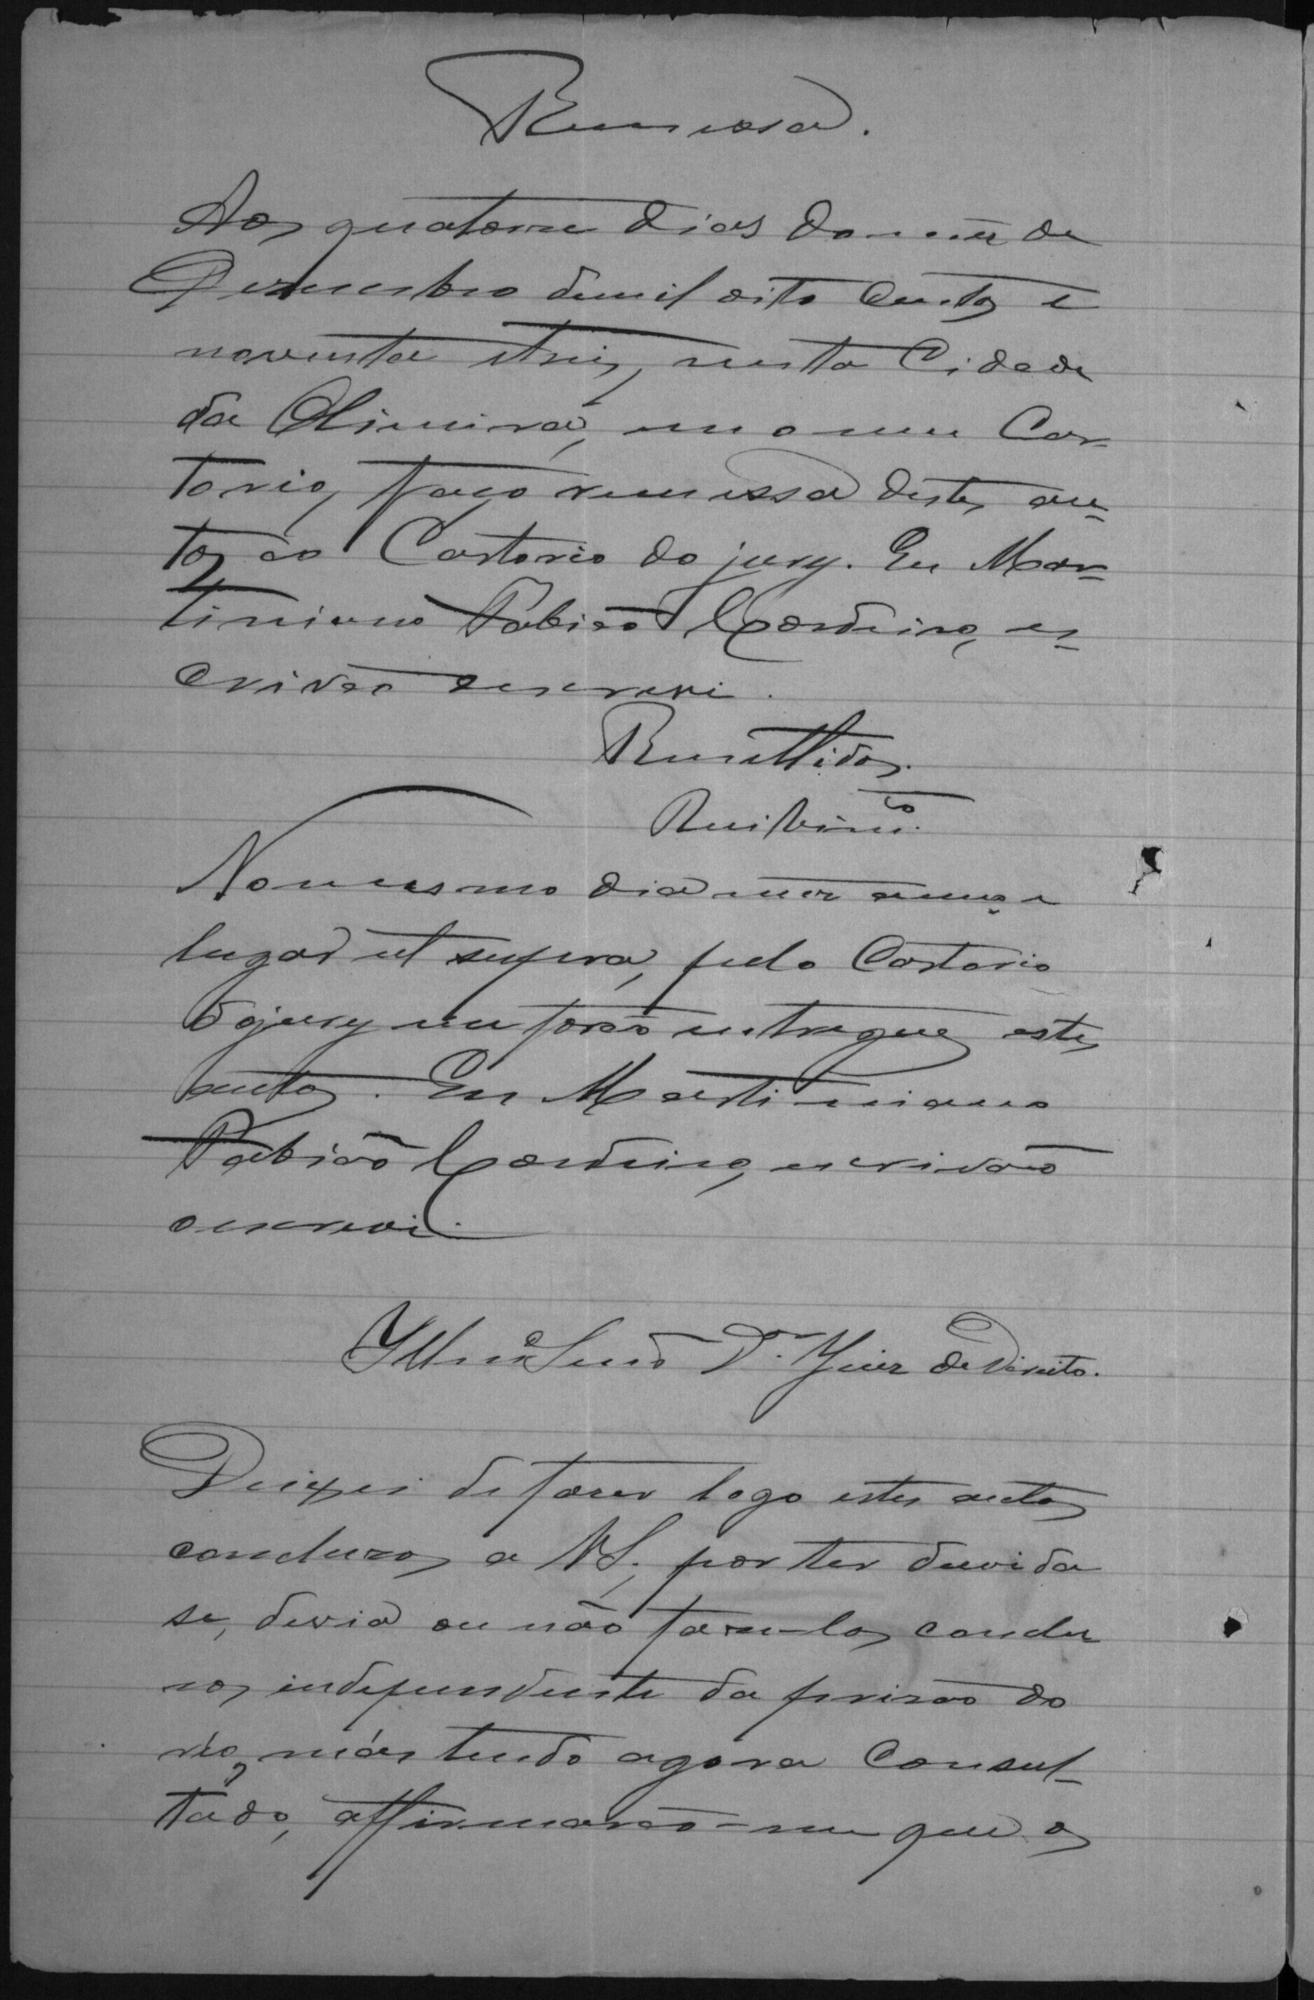 Remessa.
Aos quatorze dias do mez de
Dezembro de mil oito centos e
noventa e tres, nesta Cidade
da Oliveira, em o meu Car-
torio, faço remessa destes au-
tos ao Cartorio do jury. Eu Mar-
timiano Fabião Cordeiro, es-
crivão o escrevi.
Remettidos.
Recebim.to
No mesmo dia mez anno e
lugar ut supra, pelo Cartorio
do jury me forão entregues estes
autos. Eu Martimiano
Fabião Cordeiro, escrivão
o escrevi.
Illmo Snr. Dr. Juiz de Direito.
Deixei de fazer logo estes autos
concluzos a V.S. por ter duvida
se, devia ou não fazel-os conclu
zos independente da prisão do
réo, más tendo agora consul-
tado, affirmarão-me que os